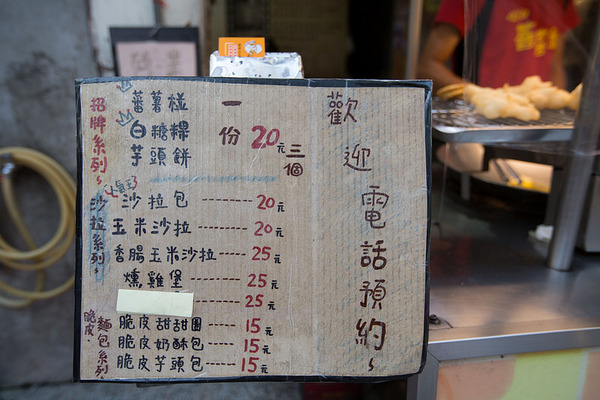 歡迎電話預約~
招牌系列~
蕃薯椪
白糖粿
芋頭餅
一份20元
三個
沙拉系列~
沙拉包------20元
玉米沙拉------20元
香腸玉米沙拉------25元
燻雞堡------25元
------25元
脆皮麵包系列~
脆皮甜甜圈----15元
脆皮奶酥包----15元
脆皮芋頭包----15元